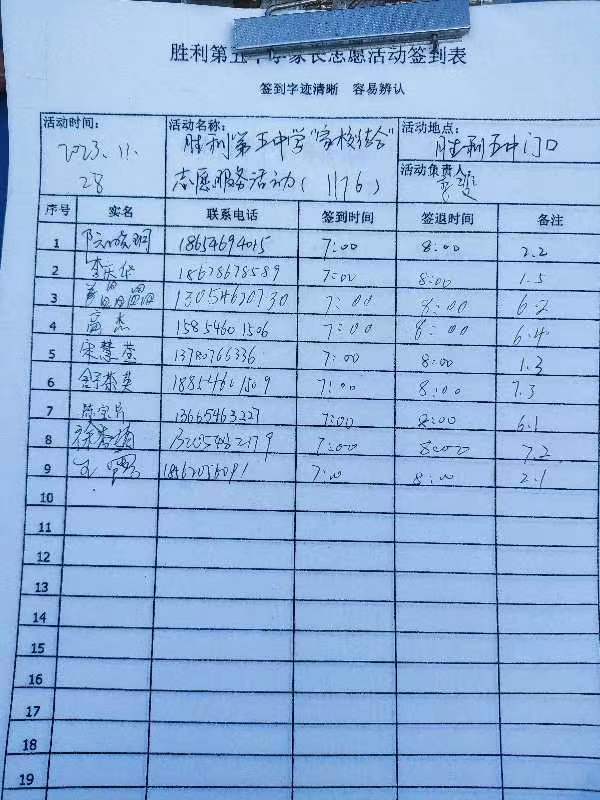 胜利第五中学家长志愿活动签到表
签到字迹清晰 容易辨认
活动时间: 2023.11.28
活动名称: 胜利第五中学"家校结合"志愿服务活动(1176)
活动地点: 胜利五中门口
活动负责人:
序号 实名 联系电话 签到时间 签退时间 备注
1 7:00 8:00 2.2
2 李庆华 18678678589 7:00 8:00 1.5
3 13054620730 7:00 8:00 6.2
4 高杰 15854601506 7:00 8:00 6.4
5 宋慧莹 13780766336 7:00 8:00 1.3
6 7:00 8:00 7.3
7 13665463227 7:00 8:00 6.1
8 7:00 8:00 7.2
9 王露 7:00 8:00 2.1
10
11
12
13
14
15
16
17
18
19